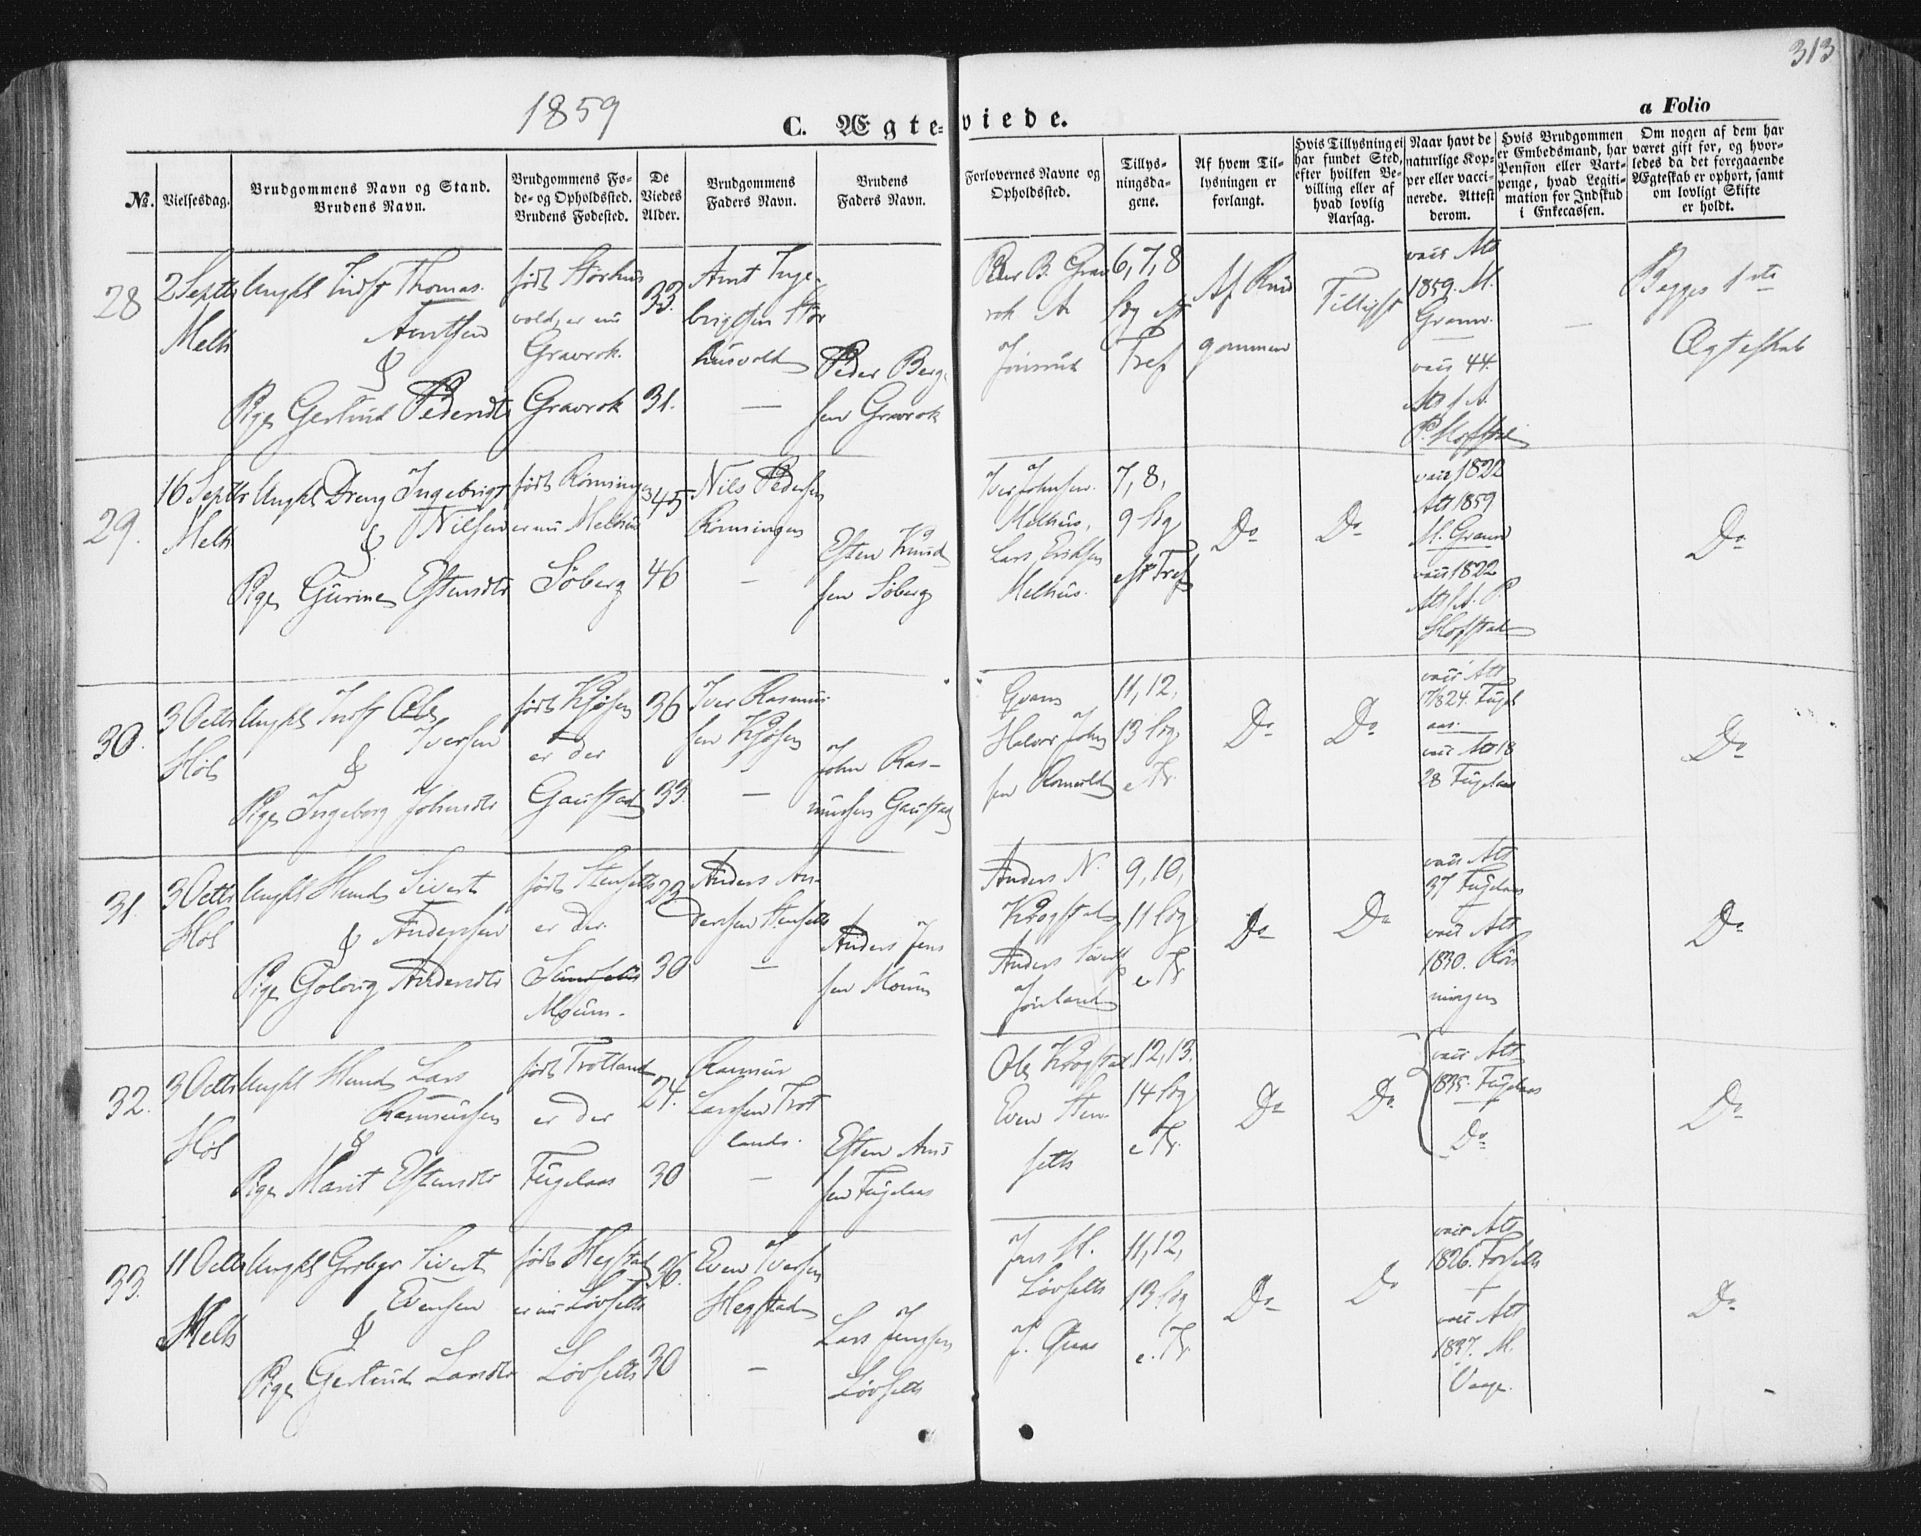 313
1859
C. Ægte-viede.
a Folio
No.
Vielsesdag.
Brudgommens Navn og Stand.
Brudens Navn.
Brudgommens Fø-
de- og Opholdssted.
Brudens Fødested.
De
Viedes
Alder.
Brudgommens
Faders Navn.
Brudens
Faders Navn.
Forlovernes Navne og
Opholdssted.
Tillys-
ningsda-
gene.
Af hvem Til-
lysningen er
forlangt.
Hvis Tillysning ei
har fundet Sted,
efter hvilken Be-
villing eller af
hvad lovlig
Aarsag.
Naar havt de
naturlige Kop-
per eller vacci-
nerede. Attest
derom.
Hvis Brudgommen
er Embedsmand, har
Pension eller Vart-
penge, hvad Legiti-
mation for Indskud
i Enkecassen.
Om nogen af dem har
været gift før, og hvor-
ledes da det foregaaende
Ægteskab er ophørt, samt
om lovligt Skifte
er holdt.
28
2 Septbr
Melh
Ungkl Indst Thomas
Arntsen
&
Pige Gertrud Pedersdtr
født Størhus
vold, er nu
Gravrok.
Gravrok
33.
31.
Arnt Inge-
brigtsen Stør
husvold
—
Peder Berg-
sen Gravrok
Peder B. Grav
rok
6, 7, 8
Søg eft
Tref
Af Brud
gommen
Tillyst
vacc Att
1859. M.
Gram.
vacc 44.
—
Begges 1ste
Ægteskab
29.
16 Septbr
Melh
Ungkl Dreng Ingebrigt
Nilsen
&
Pige Gurine Estensdtr
født Rømingen
er nu Melhus
Søberg
45
46
Nils Pedersen
Rømingen
—
Esten Knud
sen Søberg
Iver Johnsen
Melhus,
Lars Eriksen
Melhus.
7, 8,
9 Søg
eft Tref
Do
Do
vacc 1822
Att 1859
M. Gram
vacc 1822
Hofstad
Do
30.
3 Octbr
Høl
Ungkl Indst Ole
Iversen
&
Pige Ingeborg Johnsdtr
født Kjøsen
er der
Gaustad
36
33.
Iver Rasmus
sen Kjøsen
—
John Ras-
mussen Gaustad
Halvor John
sen
11, 12,
13 Søg
e Tr.
Do
Do
vacc Att
1824. Fugl
aas.
vacc Att 18
28 Fuglaas
Do
31.
3 Octbr
Høl
Ungkl Mand Sivert
Andersen
&
Pige Goloug Andersdtr
født Stensetth
er der.
Moum.
23
30
Anders An-
dersen Stenseth
—
Anders Jens
sen Moum
Anders N.
Krogstad
Anders Sivert
9, 10,
11 Søg
e Tr
Do
Do
vacc Att
37 Fuglaas
vacc Att
1830. Røm
mingen
Do
32.
3 Octbr
Høl
Ungkl Mand Lars
Rasmussen
&
Pige Marit Estensdtr
født Trotland
er der
Fuglaas
24.
30
Rasmus
Larssen Trot
lands.
—
Esten Arns
sen Fuglaas
Ole Krogstad
Even Sten
seth
12, 13.
14 Søg
e Tr.
Do
Do
vacc Att
1835. Fuglaas
Do
Do
33.
11 Octbr
Melh
Ungkl Grdbgr Sivert
Evensen
&
Pige Gertrud Larsdtr
født Hegstad
er nu Løvseth
Løvseth
36.
30
Even Iversen
Hegstad
—
Lars Jensen
Løvseth
Jens M.
Løvseth
11, 12,
13 Søg
e. Tr.
Do
Do
vacc Att
1826. Forseth
vacc Att
1837. M.
Vaage.
Do